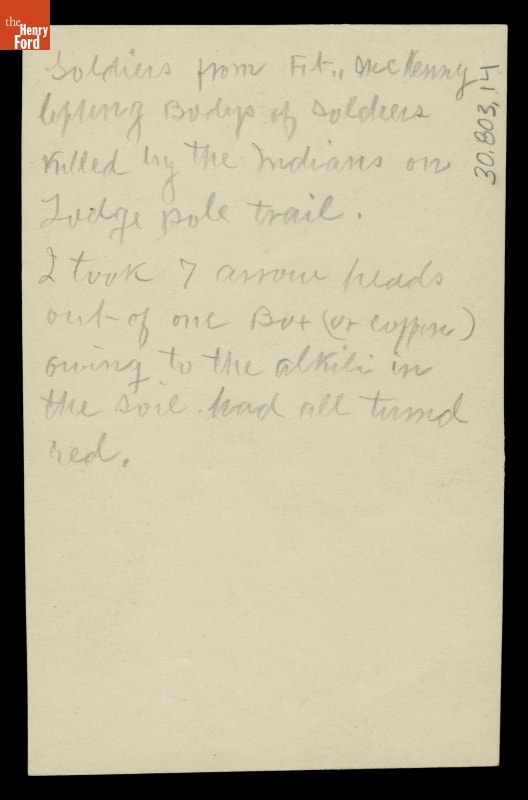 the
Henry
Ford
30.803.14
Soldiers from Ft., McKenny
lifting Bodys of soldiers
killed by the Indians on
Lodge pole trail.
I took 7 arrow heads
out of one Box (or coffin)
owing to the alkili in
the soil had all turnd
red.